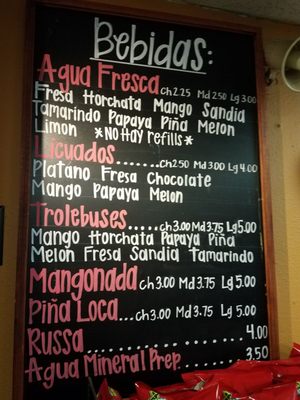 Bebidas:
Agua Fresca ch 2.25 Md 2.50 Lg 3.00
Fresa Horchata Mango Sandia
Tamarindo Papaya Piña Melon
Limon *No Hay refills*
Licuados.......ch 2.50 Md 3.00 Lg 4.00
Platano Fresa Chocolate
Mango Papaya Melon
Trolebuses.....ch 3.00 Md 3.75 Lg 5.00
Mango Horchata Papaya Piña
Melon Fresa Sandia Tamarindo
Mangonada ch 3.00 Md 3.75 Lg 5.00
Piña Loca...ch 3.00 Md 3.75 Lg 5.00
Russa ................ 4.00
Agua Mineral Prep. ........ 3.50